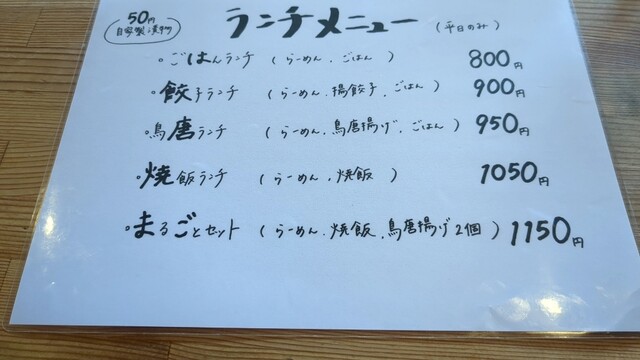 50円
自家製漬物
ランチメニュー (平日のみ)
。ごはんランチ (らーめん、ごはん) 800円
。餃子ランチ (らーめん、揚餃子、ごはん) 900円
。鳥唐ランチ (らーめん、鳥唐揚げ、ごはん) 950円
。焼飯ランチ (らーめん、焼飯) 1050円
。まるごとセット (らーめん、焼飯、鳥唐揚げ2個) 1150円